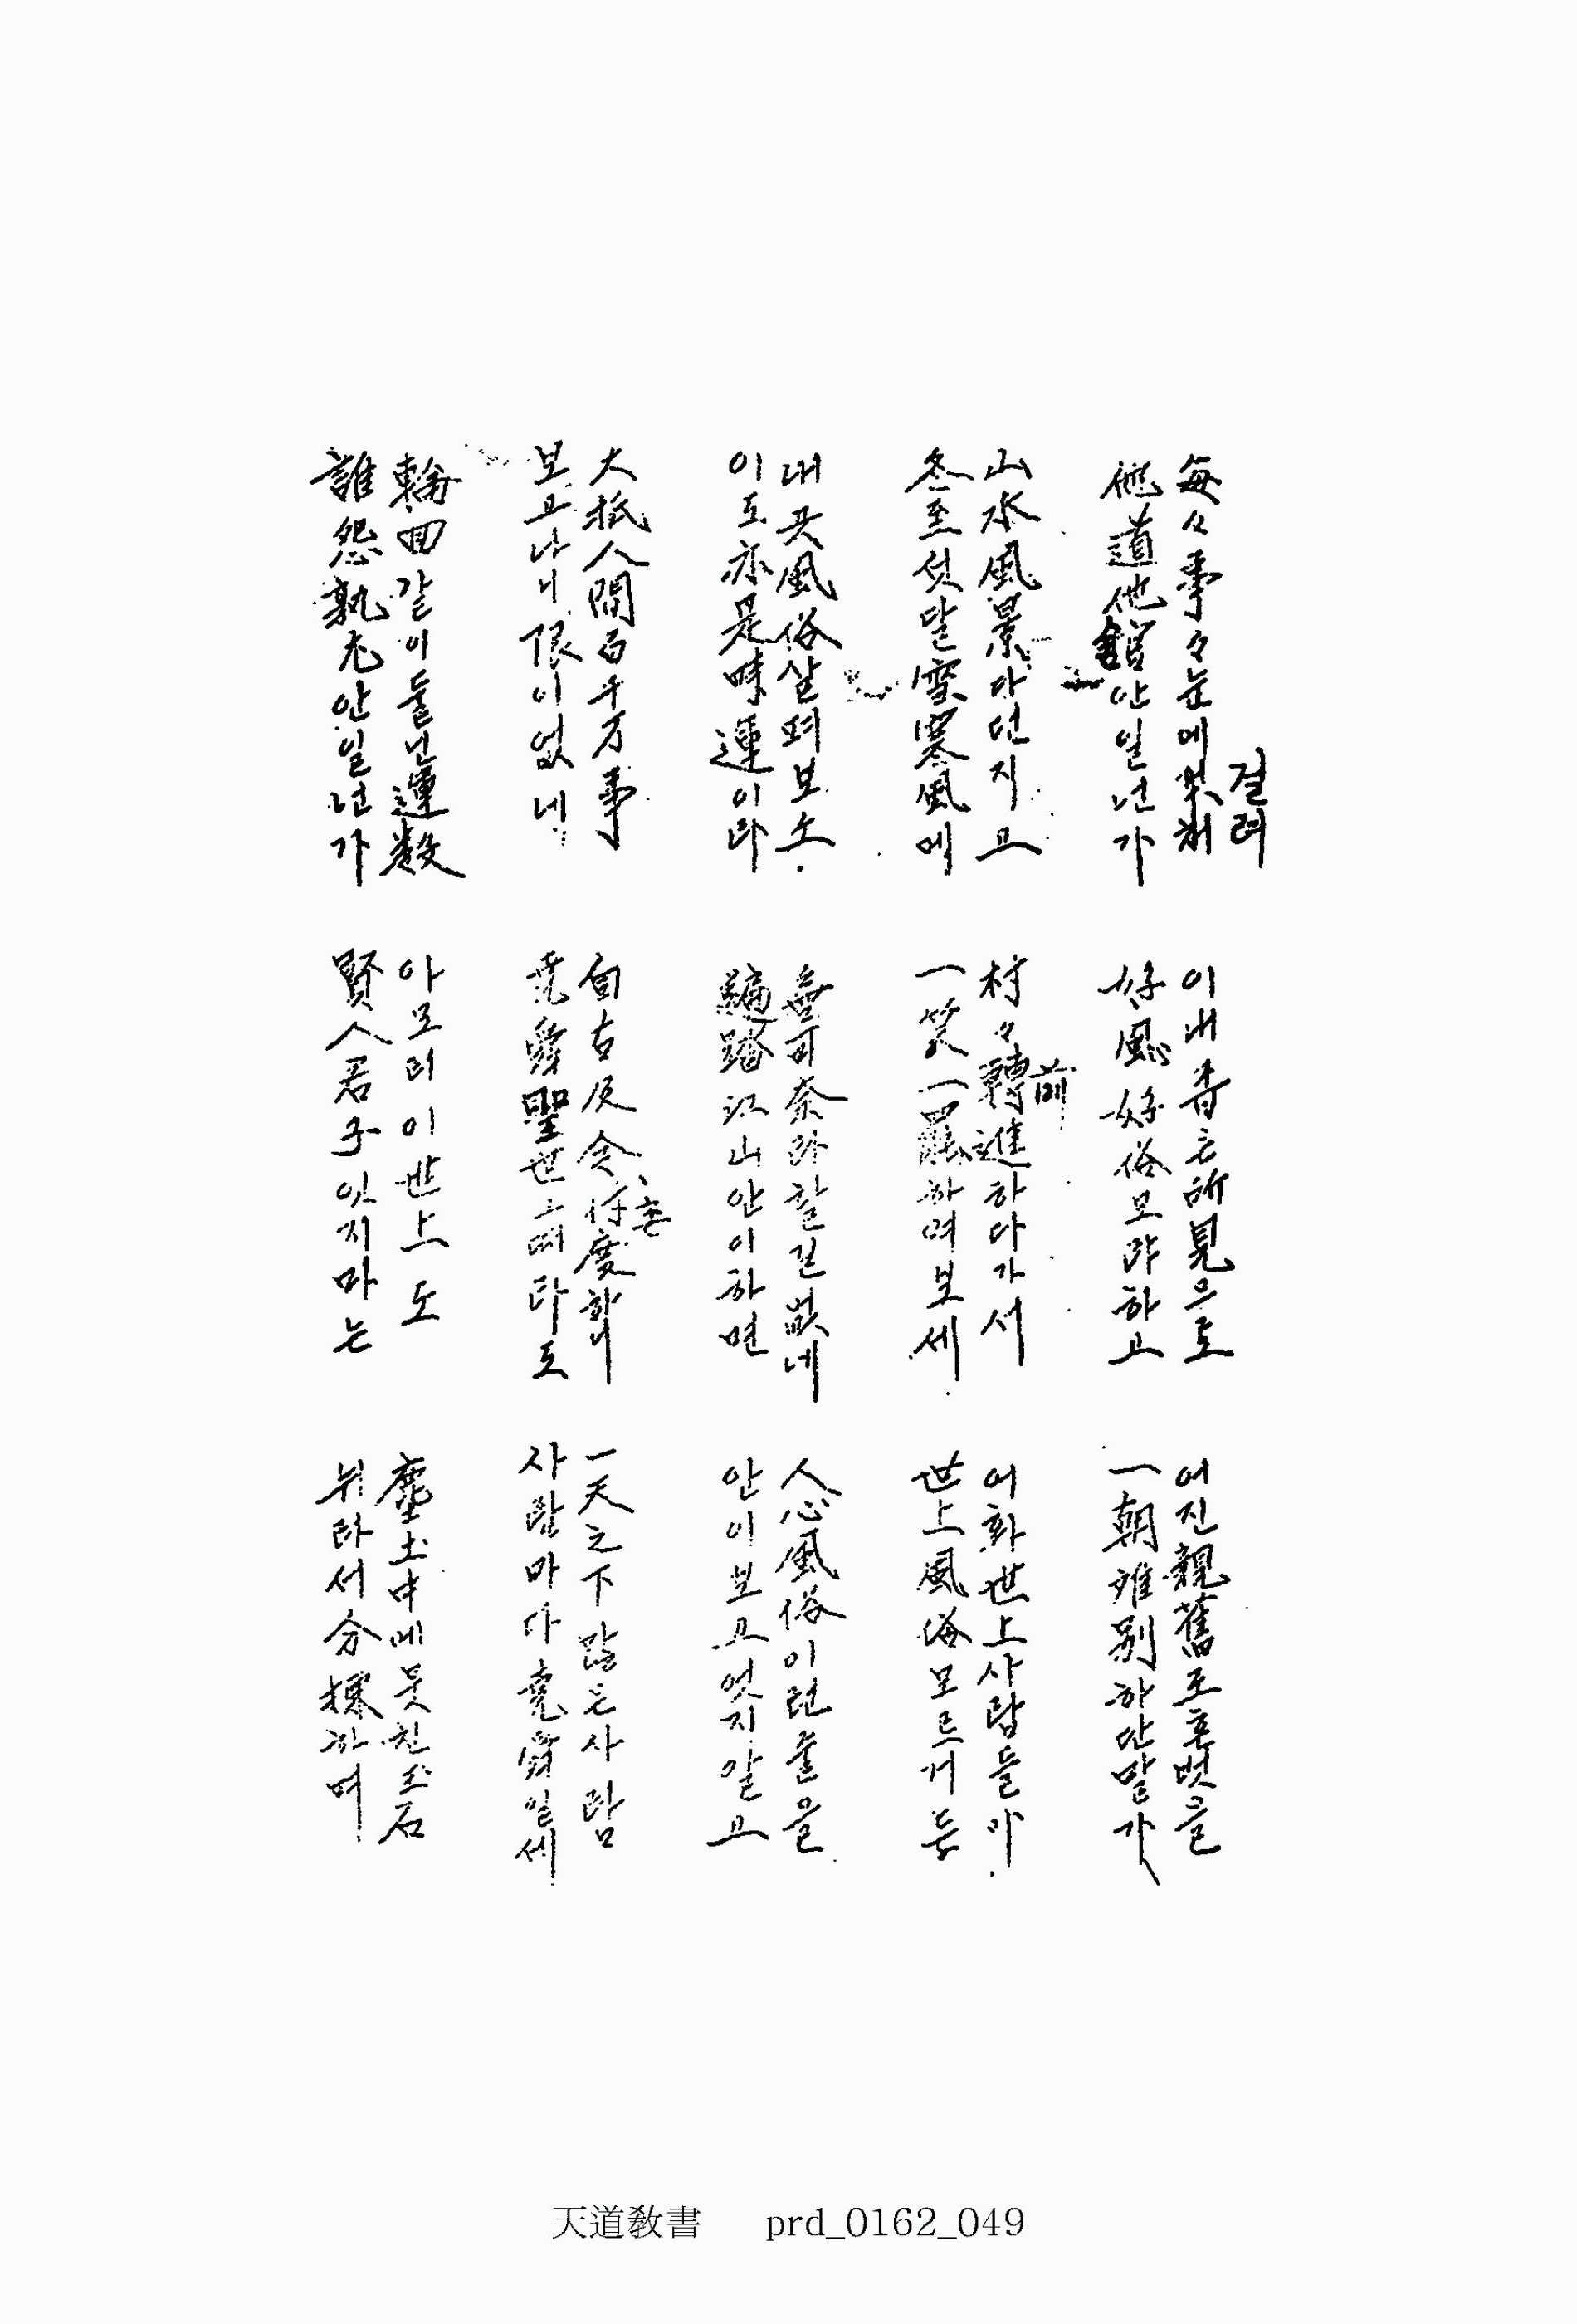 每々事々눈에걸려
이내좁은所見으로
어진親舊조흔벗을
他道他官안일넌가
好風好俗보랴하고
一朝離別하단말가
山水風景다던지고
村々前進하다가서
어화世上사람들아
冬至섯달雪寒風에
一笑一罷하며보세
世上風俗모르거든
내곳風俗살펴보소
無可奈라할길없네
人心風俗이런줄을
이도亦是時運이라
遍踏江山안이하면
안이보고엇지알고
大抵人間百千万事
自古及今忖度하니
一天之下많은사람
보고나니限이없네
堯舜聖世그때라도
사람마다堯舜일세
輪回같이둘넌運数
아모리이世上도
塵土中에뭇친玉石
誰怨孰尤안일넌가
賢人君子잇지마는
뉘라서分揀하며
天道敎書 prd_0162_049